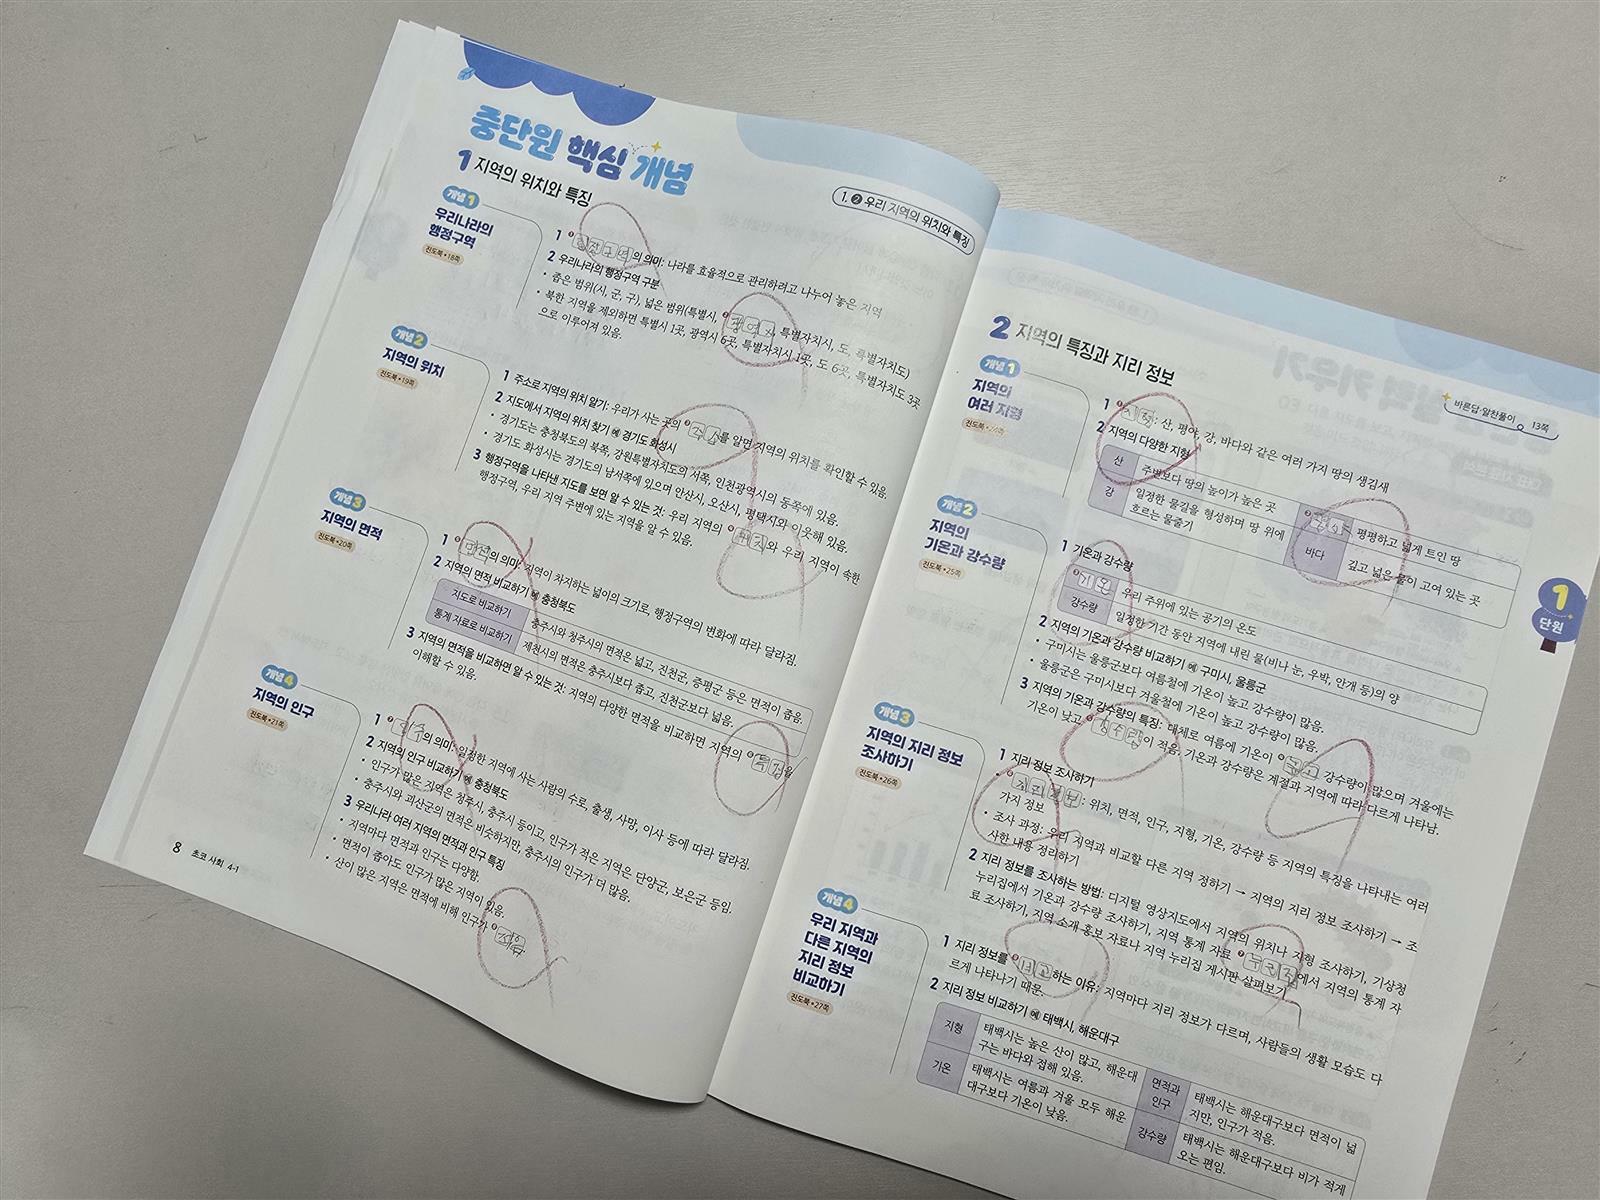 중단원 핵심 개념
1 지역의 위치와 특징
1. ❷ 우리 지역의 위치와 특징
개념 1
우리나라의
행정구역
진도북 • 18쪽
1 행정구역의 의미: 나라를 효율적으로 관리하려고 나누어 놓은 지역
2 우리나라의 행정구역 구분
• 좁은 범위(시, 군, 구), 넓은 범위(특별시, 광역시, 특별자치시, 도, 특별자치도)
• 북한 지역을 제외하면 특별시 1곳, 광역시 6곳, 특별자치시 1곳, 도 6곳, 특별자치도 3곳
으로 이루어져 있음.
개념 2
지역의 위치
진도북 • 19쪽
1 주소로 지역의 위치 알기: 우리가 사는 곳의 주소를 알면 지역의 위치를 확인할 수 있음.
2 지도에서 지역의 위치 찾기 예 경기도 화성시
• 경기도는 충청북도의 북쪽, 강원특별자치도의 서쪽, 인천광역시의 동쪽에 있음.
• 경기도 화성시는 경기도의 남서쪽에 있으며 안산시, 오산시, 평택시와 이웃해 있음.
3 행정구역을 나타낸 지도를 보면 알 수 있는 것: 우리 지역의 위치와 우리 지역이 속한
행정구역, 우리 지역 주변에 있는 지역을 알 수 있음.
개념 3
지역의 면적
진도북 • 20쪽
1 면적의 의미: 지역이 차지하는 넓이의 크기로, 행정구역의 변화에 따라 달라짐.
2 지역의 면적 비교하기 예 충청북도
지도로 비교하기 충주시와 청주시의 면적은 넓고, 진천군, 증평군 등은 면적이 좁음.
통계 자료로 비교하기 제천시의 면적은 충주시보다 좁고, 진천군보다 넓음.
3 지역의 면적을 비교하면 알 수 있는 것: 지역의 다양한 면적을 비교하면 지역의 특징을
이해할 수 있음.
개념 4
지역의 인구
진도북 • 21쪽
1 인구의 의미: 일정한 지역에 사는 사람의 수로, 출생, 사망, 이사 등에 따라 달라짐.
2 지역의 인구 비교하기 예 충청북도
• 인구가 많은 지역은 청주시, 충주시 등이고, 인구가 적은 지역은 단양군, 보은군 등임.
• 충주시와 괴산군의 면적은 비슷하지만, 충주시의 인구가 더 많음.
3 우리나라 여러 지역의 면적과 인구 특징
• 지역마다 면적과 인구는 다양함.
• 면적이 좁아도 인구가 많은 지역이 있음.
• 산이 많은 지역은 면적에 비해 인구가
8 초코 사회 4-1
2 지역의 특징과 지리 정보
바른답·알찬풀이 13쪽
개념 1
지역의
여러 지형
진도북 • 24쪽
1 지형: 산, 평야, 강, 바다와 같은 여러 가지 땅의 생김새
2 지역의 다양한 지형
산 주변보다 땅의 높이가 높은 곳
평평하고 넓게 트인 땅
강 일정한 물길을 형성하며 땅 위에
흐르는 물줄기
바다 깊고 넓은 물이 고여 있는 곳
개념 2
지역의
기온과 강수량
진도북 • 25쪽
1 기온과 강수량
기온 우리 주위에 있는 공기의 온도
강수량 일정한 기간 동안 지역에 내린 물(비나 눈, 우박, 안개 등)의 양
2 지역의 기온과 강수량 비교하기 예 구미시, 울릉군
• 구미시는 울릉군보다 여름철에 기온이 높고 강수량이 많음.
• 울릉군은 구미시보다 겨울철에 기온이 높고 강수량이 많음.
3 지역의 기온과 강수량의 특징: 대체로 여름에 기온이 높고 강수량이 많으며 겨울에는
기온이 낮고 강수량이 적음. 기온과 강수량은 계절과 지역에 따라 다르게 나타남.
개념 3
지역의 지리 정보
조사하기
진도북 • 26쪽
1 지리 정보 조사하기
• 지리정보: 위치, 면적, 인구, 지형, 기온, 강수량 등 지역의 특징을 나타내는 여러
가지 정보
• 조사 과정: 우리 지역과 비교할 다른 지역 정하기 → 지역의 지리 정보 조사하기 → 조
사한 내용 정리하기
2 지리 정보를 조사하는 방법: 디지털 영상지도에서 지역의 위치나 지형 조사하기, 기상청
누리집에서 기온과 강수량 조사하기, 지역 통계 자료 누리집에서 지역의 통계 자
료 조사하기, 지역 소개 홍보 자료나 지역 누리집 게시판 살펴보기
개념 4
우리 지역과
다른 지역의
지리 정보
비교하기
진도북 • 27쪽
1 지리 정보를 비교하는 이유: 지역마다 지리 정보가 다르며, 사람들의 생활 모습도 다
르게 나타나기 때문
2 지리 정보 비교하기 예 태백시, 해운대구
지형 태백시는 높은 산이 많고, 해운대
구는 바다와 접해 있음.
면적과 인구 태백시는 해운대구보다 면적이 넓
지만, 인구가 적음.
기온 태백시는 여름과 겨울 모두 해운
대구보다 기온이 낮음.
강수량 태백시는 해운대구보다 비가 적게
오는 편임.
1
단원